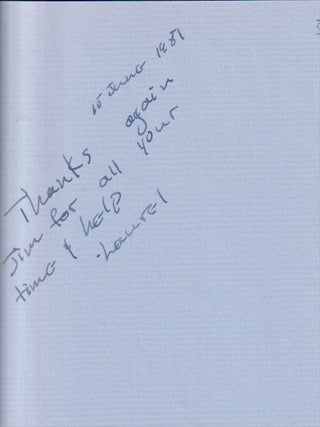 15 June 1981
Thanks again
Jim for all your
time & help
-Laurel